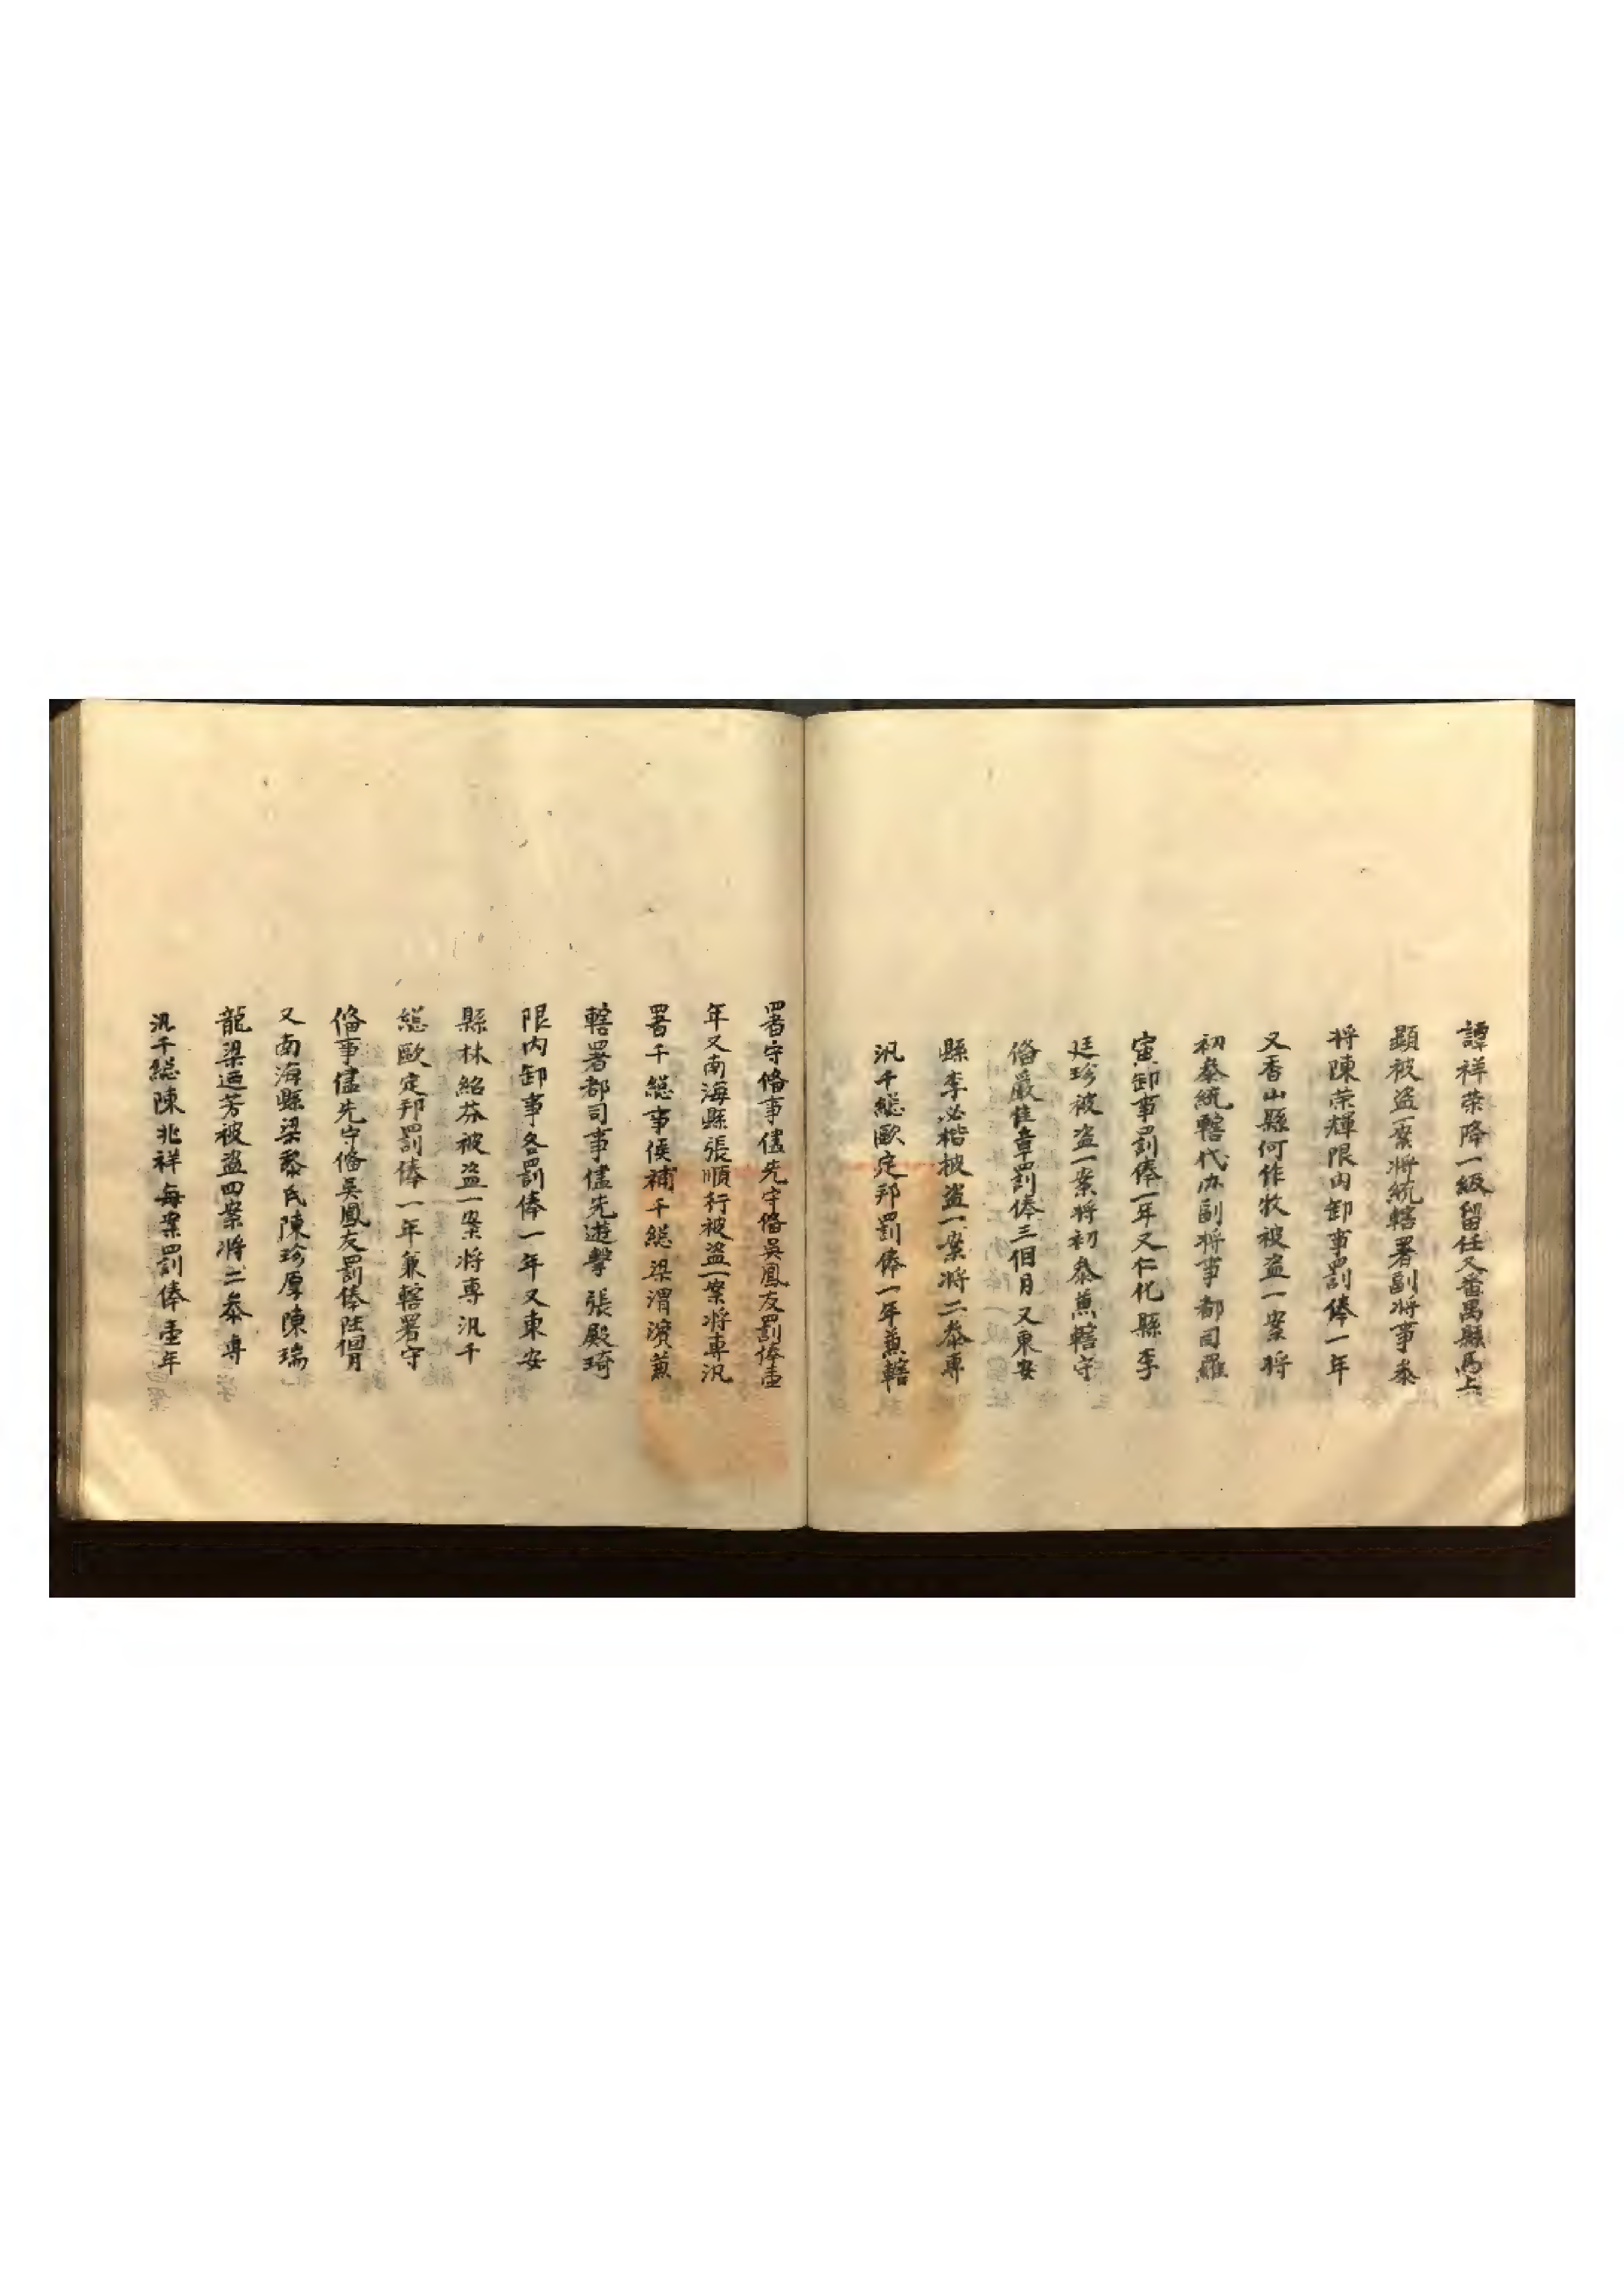 譚祥荣降一級留任又番禺縣馬上
顯被盗一案将統轄署副将事叅
将陳荣輝限内卸事罰俸一年
又香山縣何作牧被盗一案将
初叅統轄代办副将事都司羅
寅卸事罰俸一年又仁化縣李
廷珍被盗一案将初叅蕉轄守
俻嚴佳章罰俸三個月又東安
縣李必楷被盗一案将二叅專
汛千緫歐定邦罰俸一年蕉轄
署守俻事儘先守俻吳鳳友罰俸壹
年又南海縣張順行被盗一案将專汛
署千緫事侯補千緫梁渭濱蕉
轄署都司事儘先遊擊張殿琦
限内卸事各罰俸一年又東安
縣林紹芬被盗一案将專汛千
緫歐定邦罰俸一年兼轄署守
俻事儘先守俻吳鳳友罰俸陸個月
又南海縣梁黎氏陳珍厚陳瑞
龍梁迺芳被盗四案将二叅專
汛千緫陳兆祥每案罰俸壹年